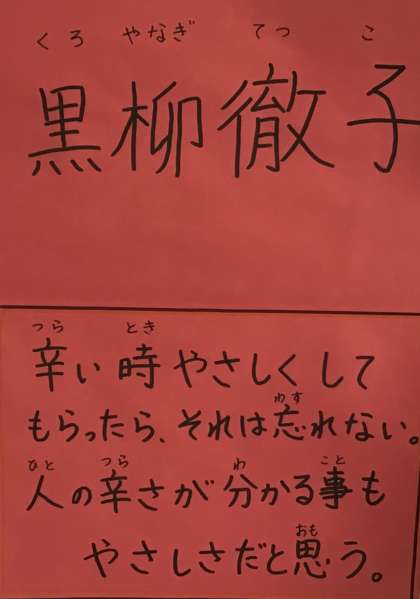 くろ やなぎ てつ こ
黒柳徹子
つら とき
辛い時やさしくして
わす
もらったら、それは忘れない。
ひと つら わ こと
人の辛さが分かる事も
おも
やさしさだと思う。